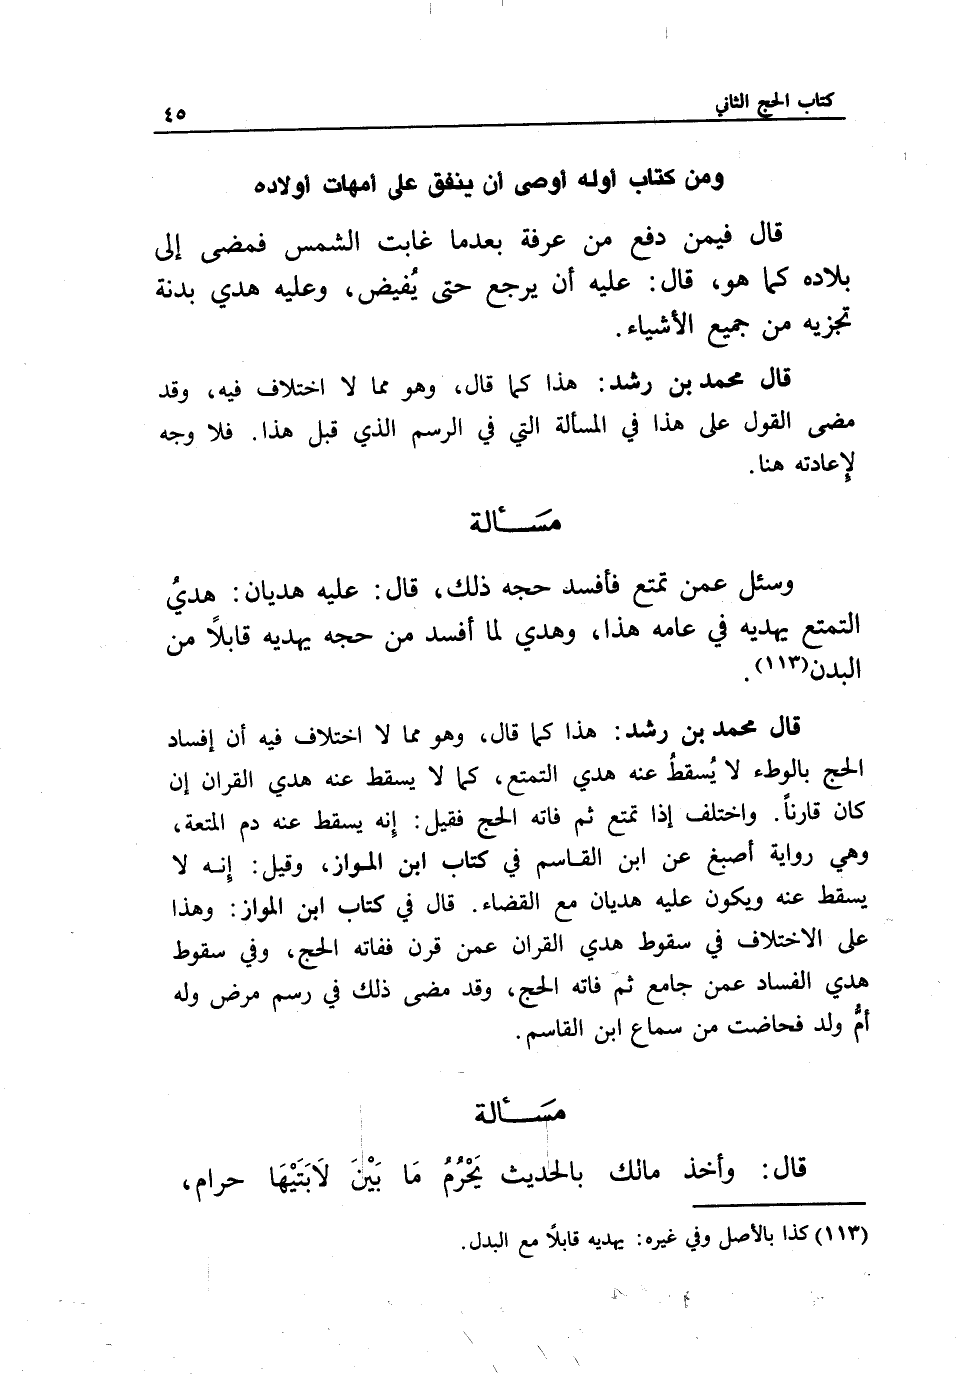 كتاب الحج الثاني
٤٥
ومن كتاب أوله أوصى أن ينفق على أمهات أولاده
قال فيمن دفع من عرفة بعدما غابت الشمس فمضى إلى
بلاده كما هو، قال: عليه أن يرجع حتى يُفيض، وعليه هدي بدنة
تجزيه من جميع الأشياء.
قال محمد بن رشد: هذا كما قال، وهو مما لا اختلاف فيه، وقد
مضى القول على هذا في المسألة التي في الرسم الذي قبل هذا. فلا وجه
لإعادته هنا.
مَسْـألة
وسئل عمن تمتع فأفسد حجه ذلك، قال: عليه هديان: هديُ
التمتع يهديه في عامه هذا، وهدي لما أفسد من حجه يهديه قابلاً من
البدن(١١٣).
قال محمد بن رشد: هذا كما قال، وهو مما لا اختلاف فيه أن إفساد
الحج بالوطء لا يُسقطُ عنه هدي التمتع، كما لا يسقط عنه هدي القران إن
كان قارناً. واختلف إذا تمتع ثم فاته الحج فقيل: إنه يسقط عنه دم المتعة،
وهي رواية أصبغ عن ابن القاسم في كتاب ابن المواز، وقيل: إنه لا
يسقط عنه ويكون عليه هديان مع القضاء. قال في كتاب ابن المواز: وهذا
على الاختلاف في سقوط هدي القران عمن قرن ففاته الحج، وفي سقوط
هدي الفساد عمن جامع ثم فاته الحج، وقد مضى ذلك في رسم مرض وله
أمُّ ولد فحاضت من سماع ابن القاسم.
مَسْـألة
قال: وأخذ مالك بالحديث يَحْرُمُ مَا بَيْنَ لَابَتَيْهَا حرام،
(١١٣) كذا بالأصل وفي غيره: يهديه قابلاً مع البدل.